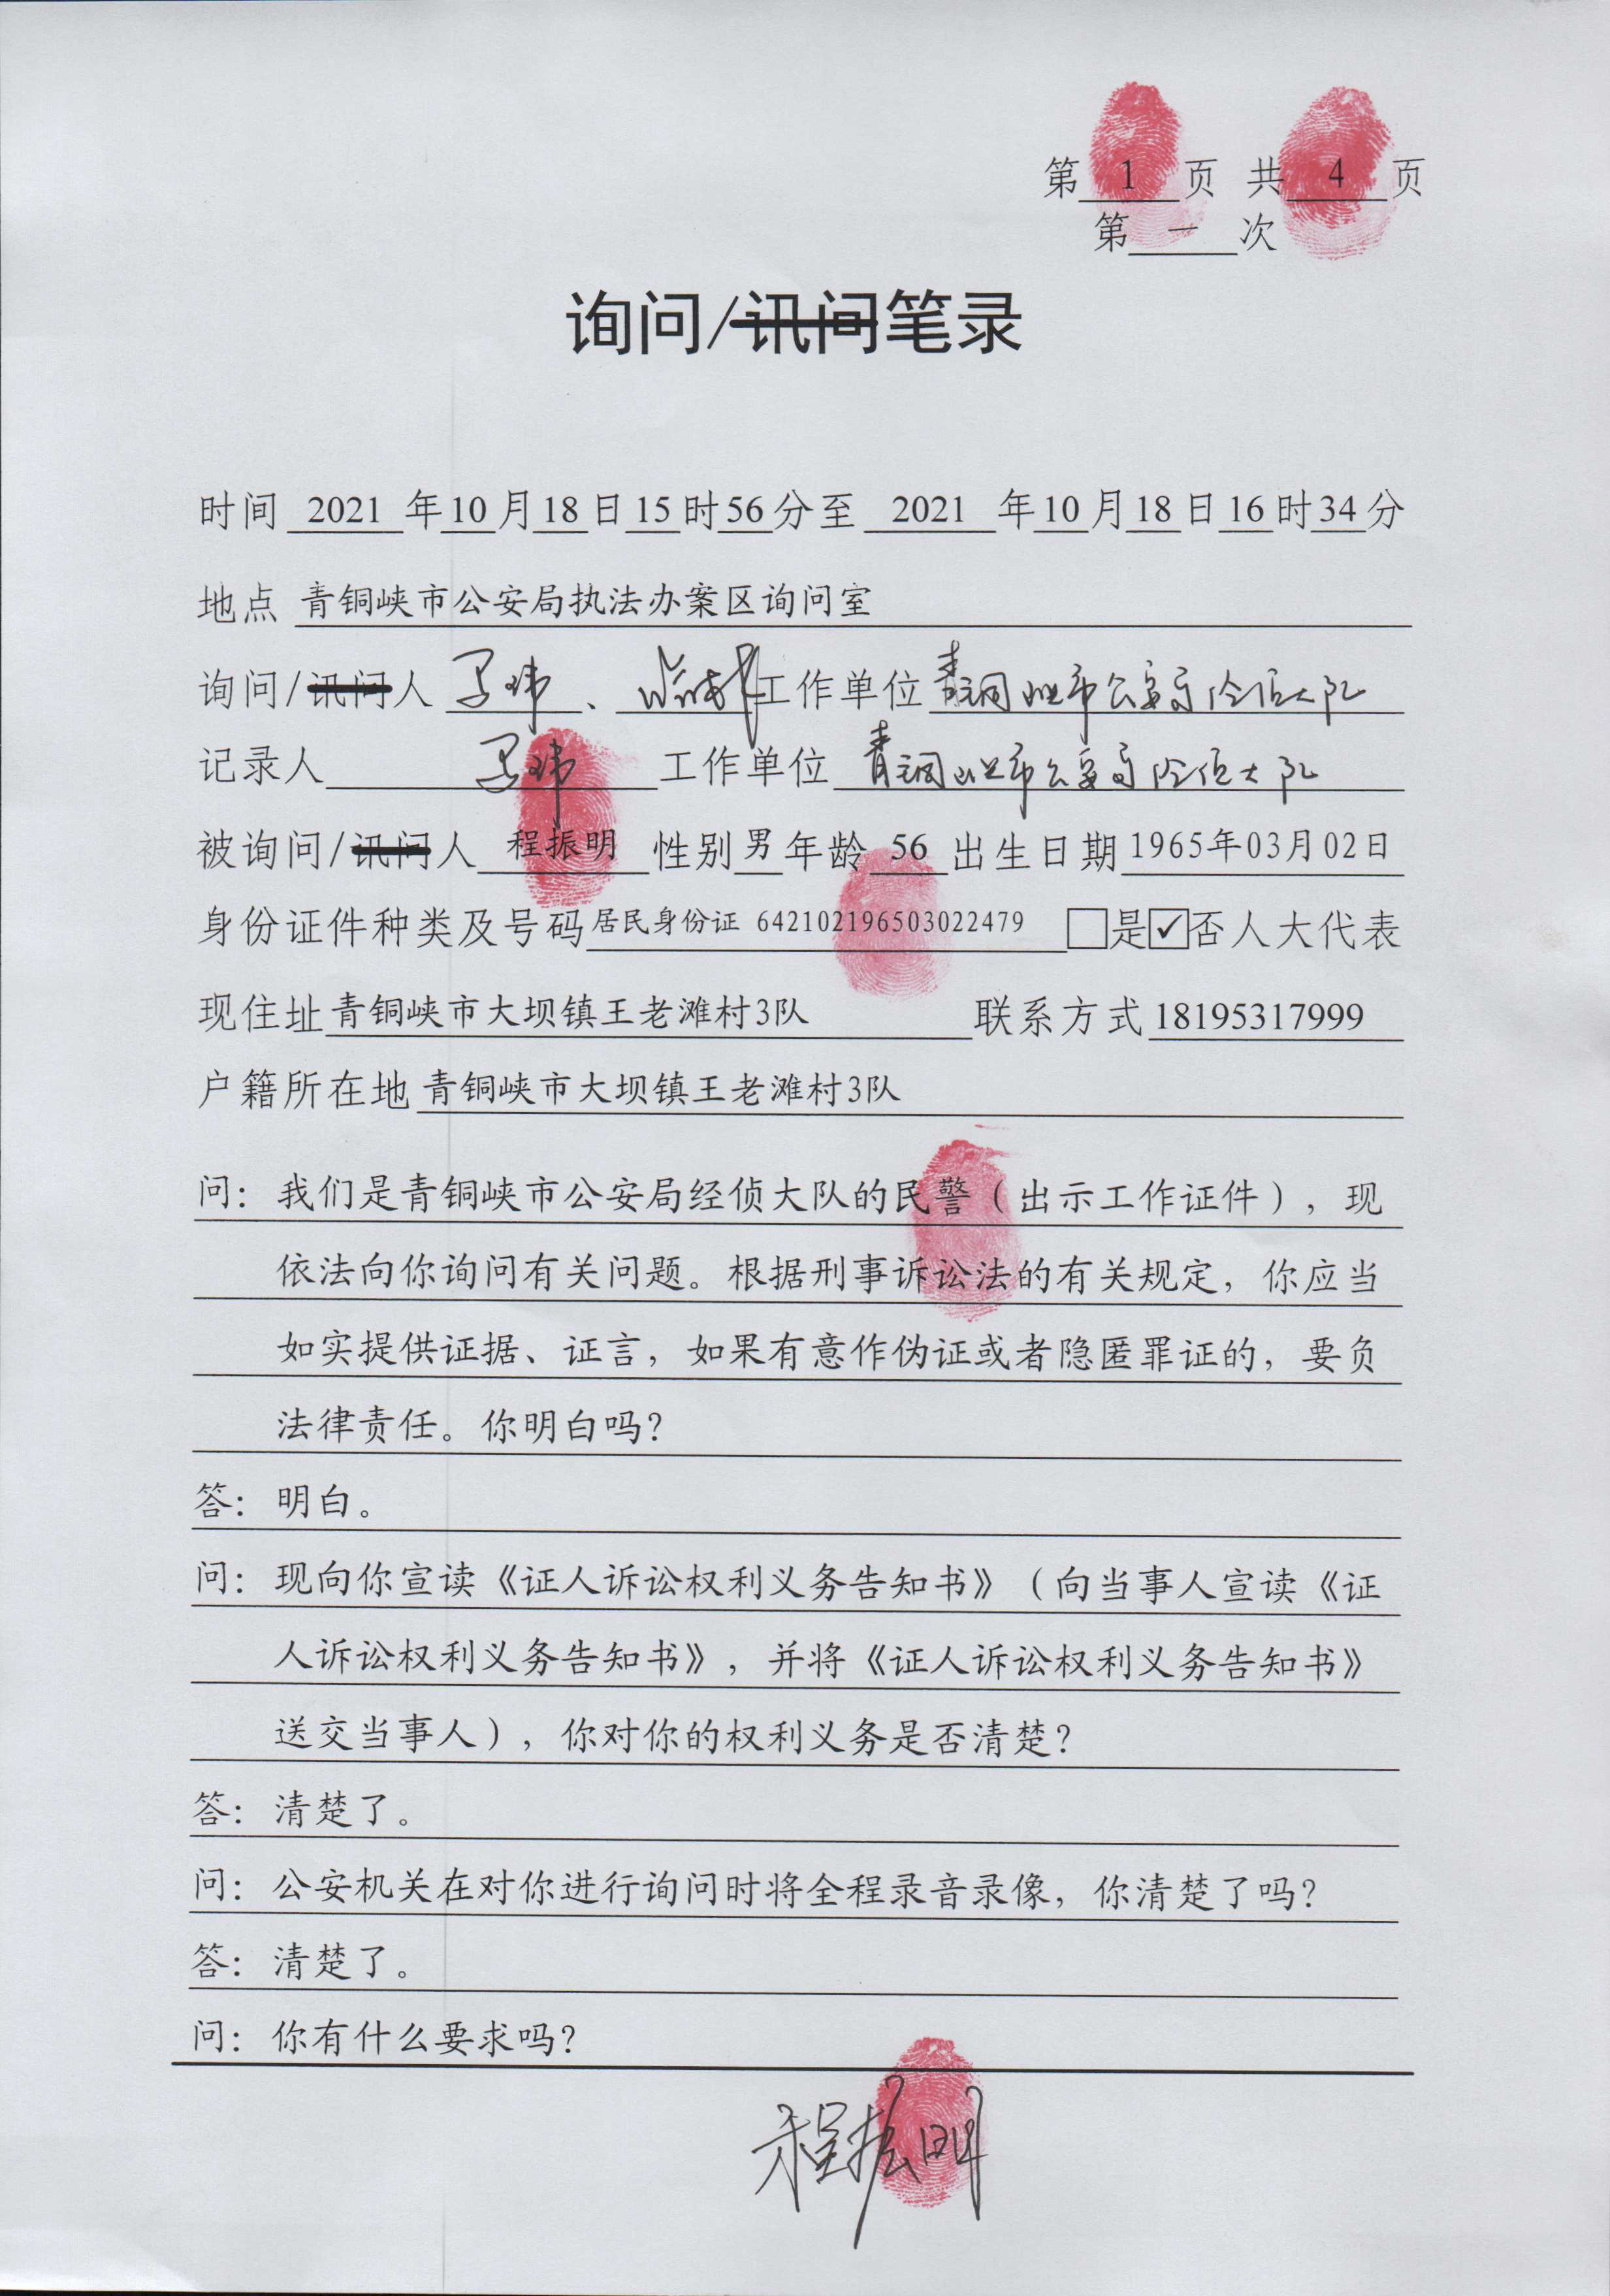 第 1 页 共 4 页
第 一 次
询问/讯问笔录
时间 2021 年 10 月 18 日 15 时 56 分至 2021 年 10 月 18 日 16 时 34 分
地点 青铜峡市公安局执法办案区询问室
询问/讯问人 、 工作单位 青铜峡市公安局经侦大队
记录人 工作单位 青铜峡市公安局经侦大队
被询问/讯问人 程振明 性别 男 年龄 56 出生日期 1965年03月02日
身份证件种类及号码 居民身份证 642102196503022479 □是☑否人大代表
现住址 青铜峡市大坝镇王老滩村3队 联系方式 18195317999
户籍所在地 青铜峡市大坝镇王老滩村3队
问：我们是青铜峡市公安局经侦大队的民警（出示工作证件），现
依法向你询问有关问题。根据刑事诉讼法的有关规定，你应当
如实提供证据、证言，如果有意作伪证或者隐匿罪证的，要负
法律责任。你明白吗？
答：明白。
问：现向你宣读《证人诉讼权利义务告知书》（向当事人宣读《证
人诉讼权利义务告知书》，并将《证人诉讼权利义务告知书》
送交当事人），你对你的权利义务是否清楚？
答：清楚了。
问：公安机关在对你进行询问时将全程录音录像，你清楚了吗？
答：清楚了。
问：你有什么要求吗？
程振明